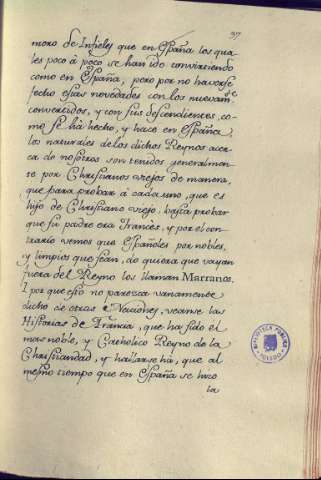 37
moro de Infieles que en España los qua-
les poco á poco se han ido convirtiendo
como en España, pero por no haverse
fecho esas novedades con los nuevamte
convertidos, y con sus descendientes, co-
mo se há hecho, y hace en España
los naturales de los dichos Reynos acer-
ca de nosotros son tenidos generalmen-
te por Christianos viejos de manera,
que para probar á cada uno, que es
hijo de Christiano viejo, basta probar
que su padre era Francés, y por el con-
trario vemos que Españoles por nobles,
y limpios que sean, do quiera que vayan
fuera del Reyno los llaman Marranos.
I por que esto no parezca vanamente
dicho de otras Naciones, veanse las
Historias de Francia, que ha sido el
mas noble, y Catholico Reyno de la
Christiandad, y hallarse há, que al
mesmo tiempo que en España se hizo
la
BIBLIOTECA PUBLICA
TOLEDO